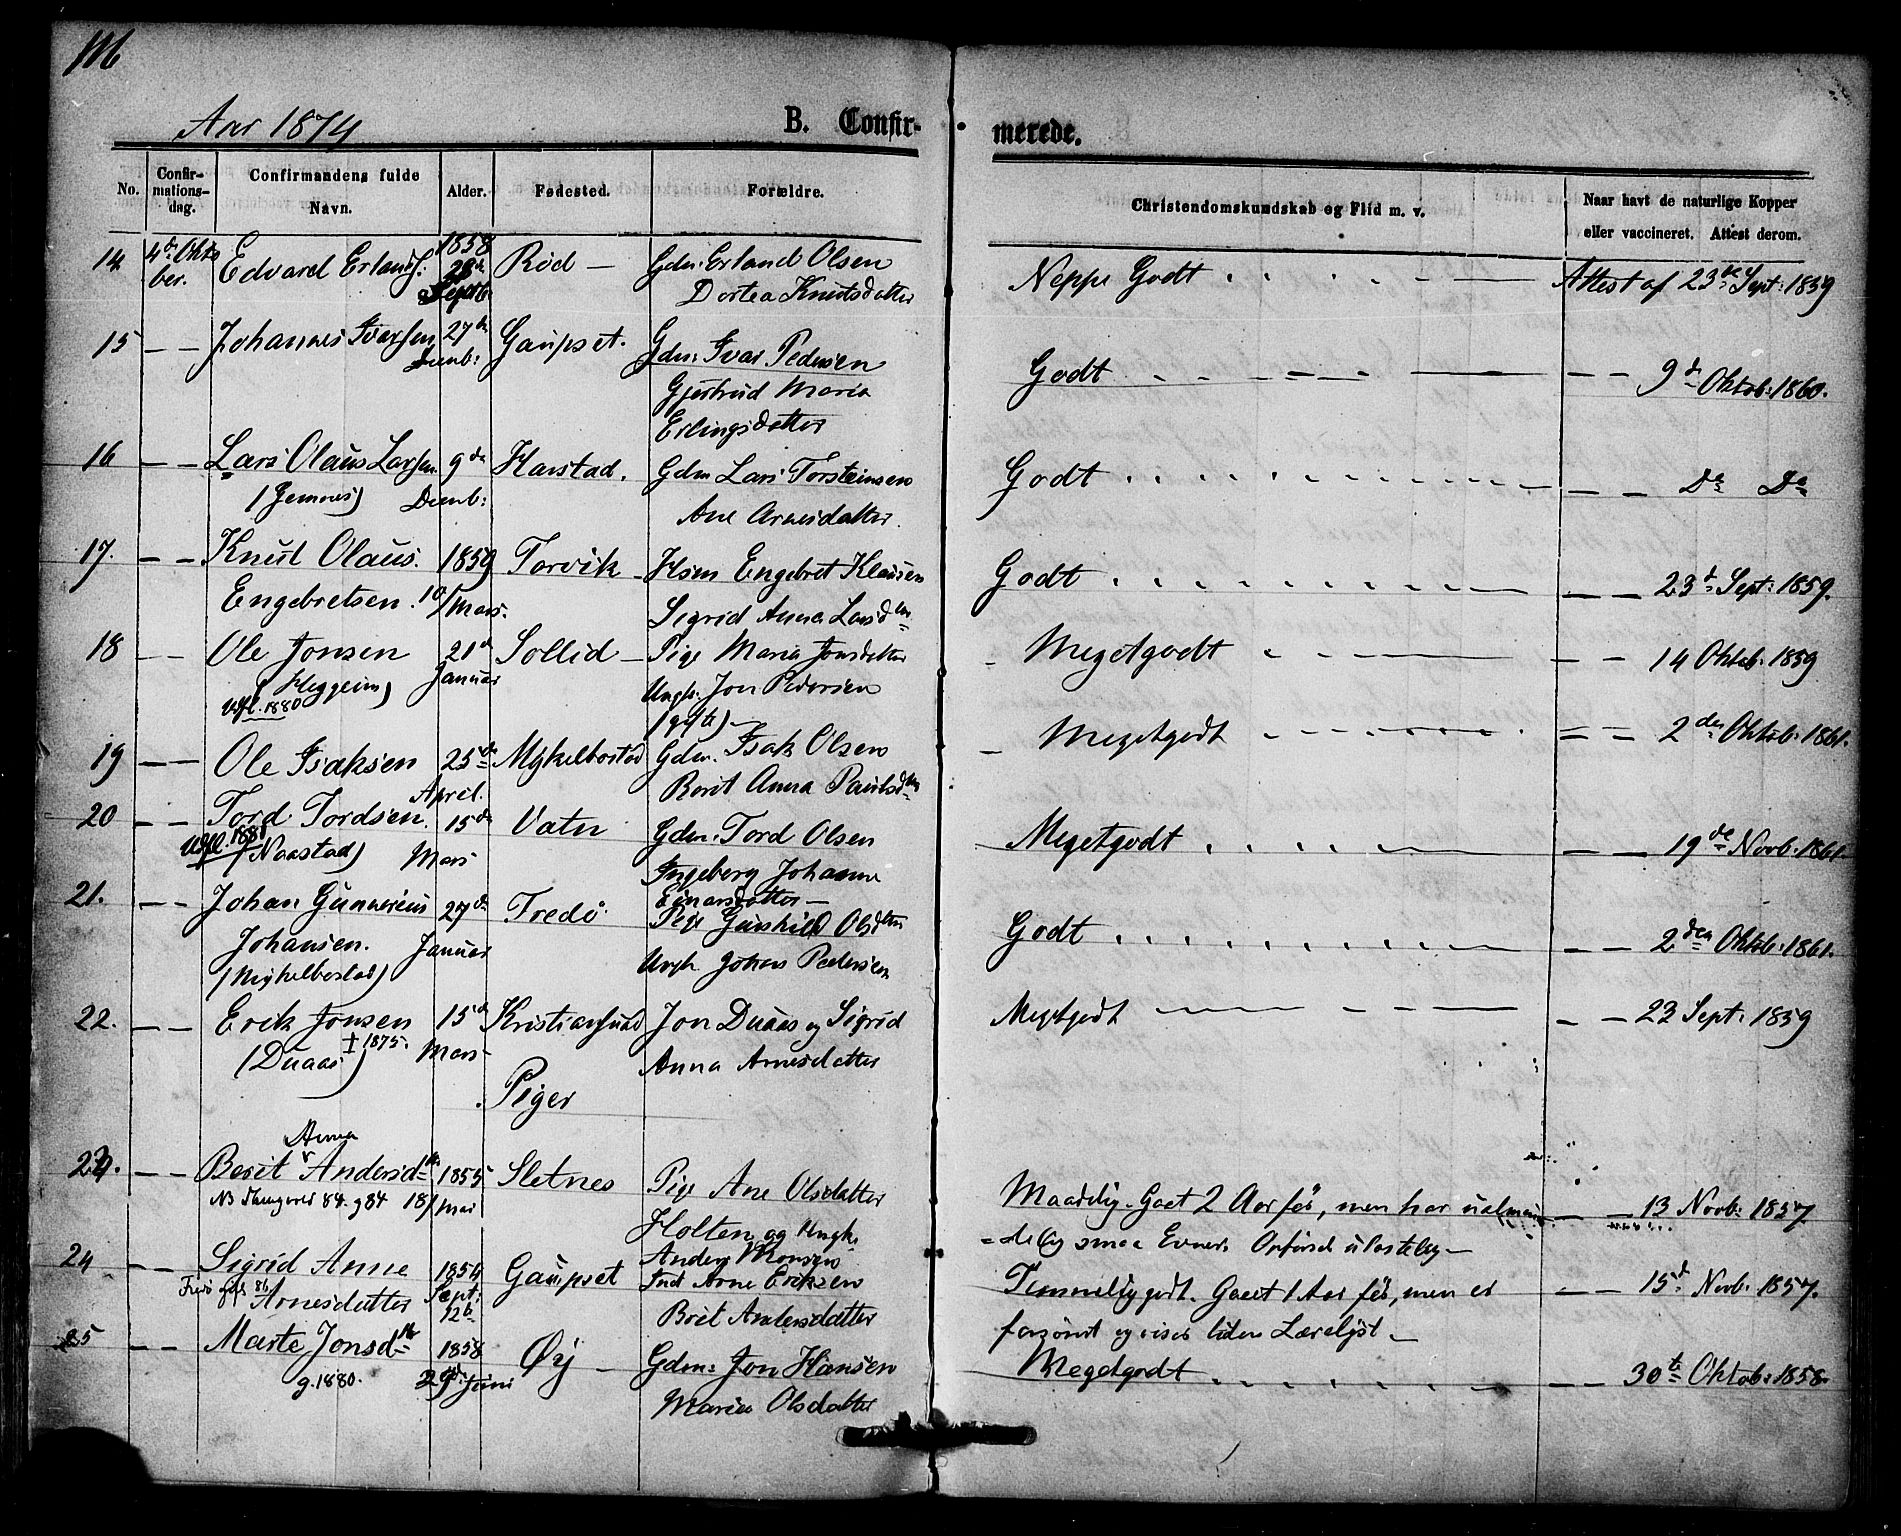 Aar 1874
B. Confir-
merede.
No.
Confir-
mations-
dag.
Confirmandens fulde
Navn.
Alder.
Fødested.
Forældre.
Christendomskundskab og Flid m. v.
Naar havt de naturlige Kopper
eller vaccineret. Attest derom.
14. 4de Okto Edvard Erlands: 1858 Rød — Gdm: Erland Olsen Neppe Godt Attest af 23de Sept: 1859
ber. 28de Dortea Knutsdatter
Septb.
15 — — Johannes Ivarsen 27de Gaupset. Gdm: Ivar Pedersen Godt — — 9de Oktob: 1860.
Decmb: Gjertrud Maria
Erlingsdatter
16 — — Lars Olaus Larsen 9de Harstad. Gdm Lars Torsteinsen Godt — — Do Do
(Jemnes) Decmb: Ane Arnesdatter.
17. — — Knut Olaus. 1859 Torvik — Hsm Engebret Klausen Godt — — 23d Sept: 1859.
Engebretsen. 10/Mars. Sigrid Anna Larsdter
18 — — Ole Jonsen 21de Sollid — Pige Maria Jonsdatter Megetgodt — — 14 Oktob. 1859
(Heggeim) Januar Ungk. Jon Pedersen
Udfl. 1880 (gift) —
19 — — Ole Isaksen 25de Mykelbostad Gdm. Isak Olsen Megetgodt — — 2den Oktob. 1861.
April. Berit Anna Paulsdtr
20 — — Tord Tordsen. 15de Vatn Gdm: Tord Olsen Megetgodt — — 19de Novb. 1861.
Udfl. 1881 (Naastad) Mars Ingeborg Johanna
Einarsdatter —
21. — — Johan Gunnerius 27de Tredø. Pige Gunhild Olsdtter Godt — — 2den Oktob: 1861.
Johansen. Januar Ungk. Johan Pedersen
(Mykelbostad)
22. — — Erik Jonsen 15de Kristiansund Jon Duaas og Sigrid Megetgodt — — 23 Sept: 1859
(Duaas) ‡ 1875. Mars Anna Arnesdatter
Piger
Anna
23. — — Berit Andersdtr 1855 Sletnes Pige Ane Olsdatter Maadelig. Gaaet 2 Aar før, men har ualmin — — 13 Novb: 1857
84. g 84 18/Mai Holten og Ungk. =delig smaa Evner. Opførsel upaaklag —
Anders Monsen
24 — — Sigrid Anne 1854 Gaupset Ind Arne Eriksen Temmelig godt. Gaaet 1 Aar før, men er — — 15d Novb. 1857.
86 Arnesdatter Sept: 12te Brit Andersdatter forsømt og viser liden Lærelyst —
25 — — Marte Jonsdtr 1858 Øij — Gdm: Jon Hansen Megetgodt — — 30te Oktob: 1858.
g. 1880. 29de Juni Maria Olsdatter